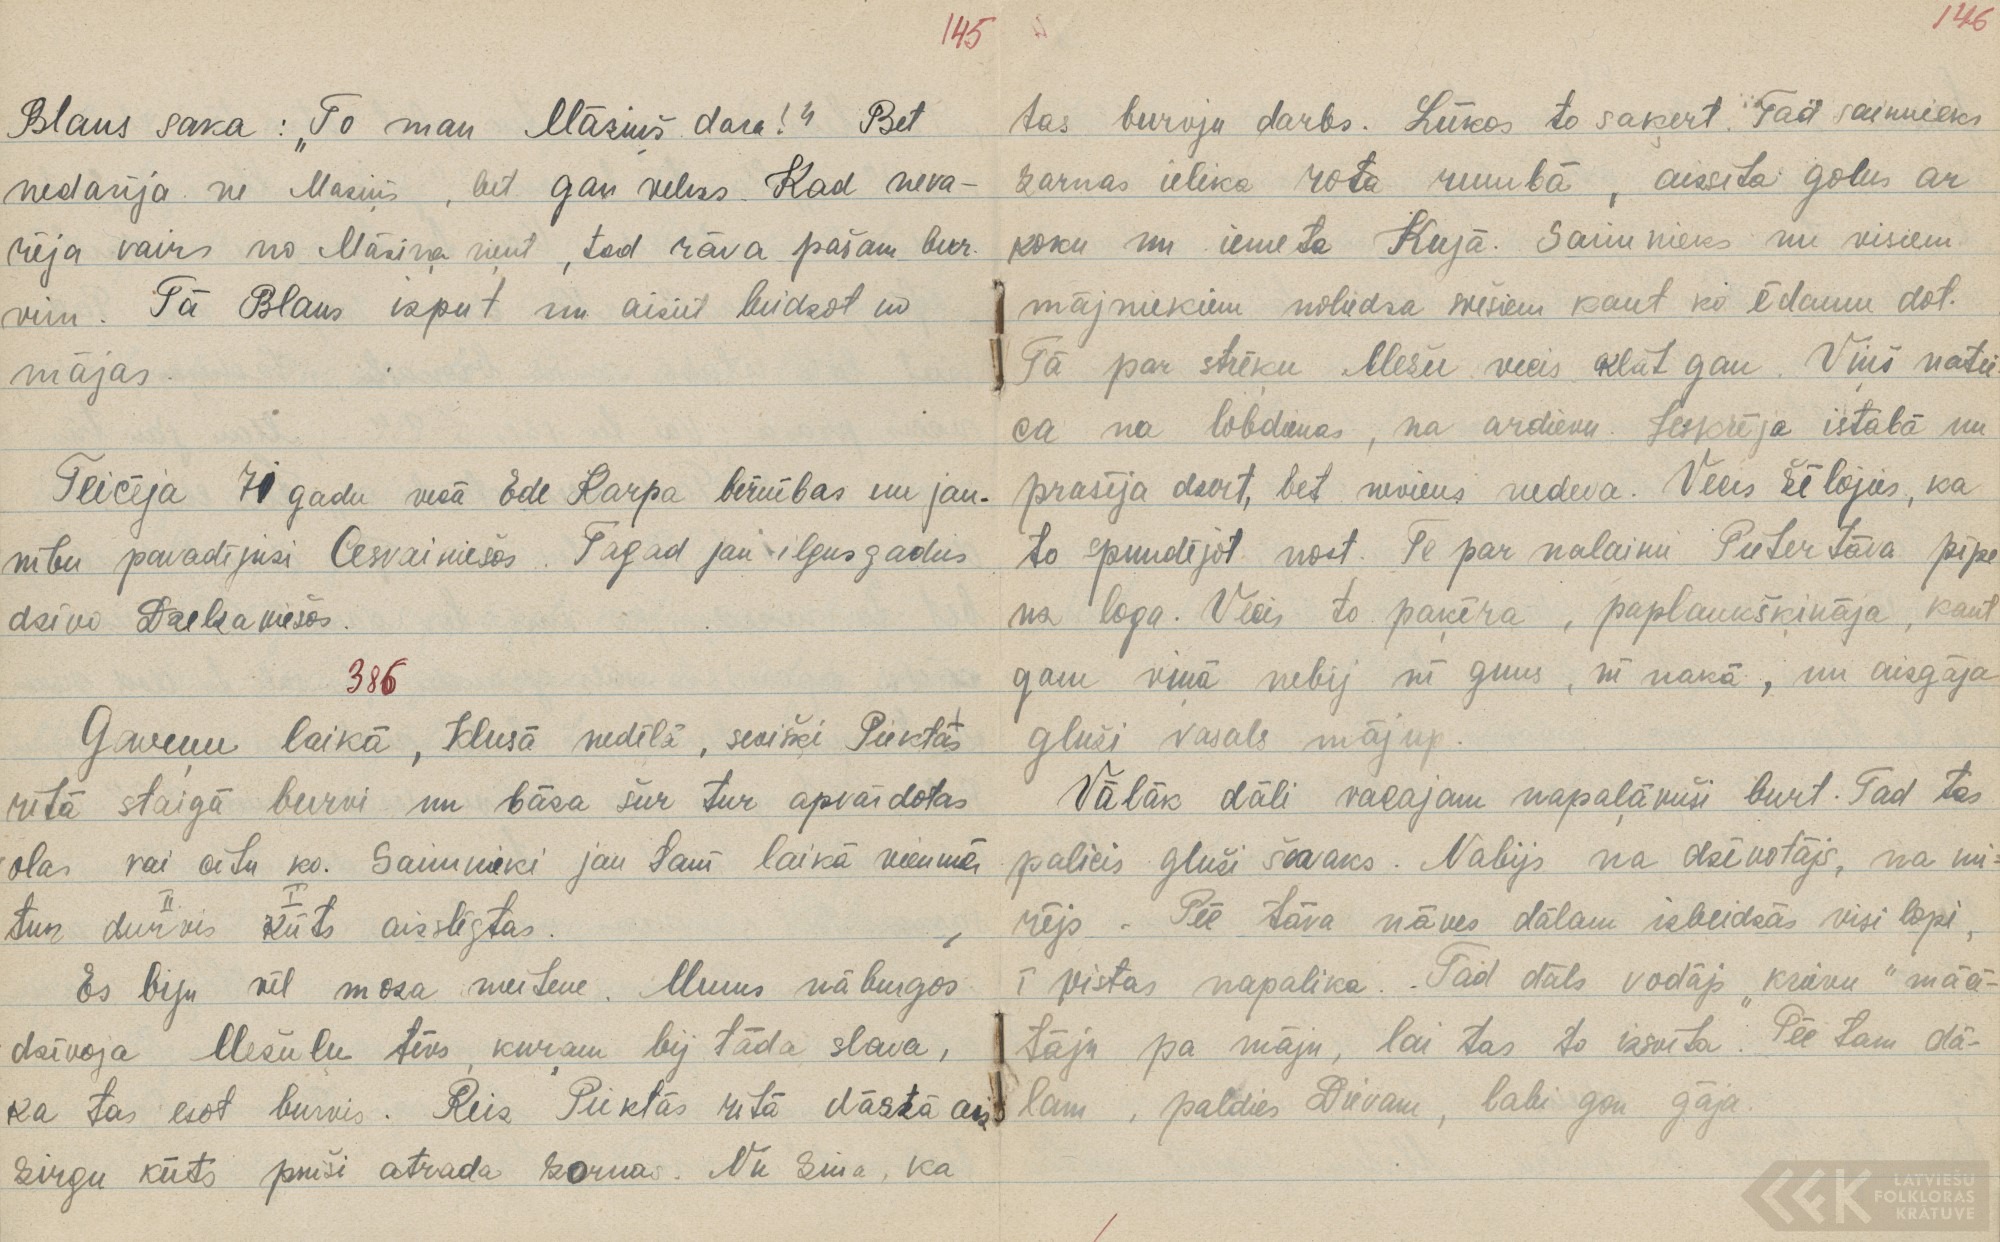 145
Blaus saka: „To man Māziņš dara!" Bet
nedarīja ne Maziņš, bet gan velns. Kad neva-
rēja vairs no Māziņa ņemt, tad rāva pašam bur-
vim. Tā Blaus izput un aiziet beidzot no
mājas.
Teicēja 71 gadu vecā Ede Karpa bērnības un jau-
nību pavadījusi Cesvainiešos. Tagad jau ilgus gadus
dzīvo Dzelzaviešos.
386
Gaveņu laikā, Klusā nedēļā, sevišķi Piektās
rītā staigā burvi un bāza šur tur apvārdotas
olas vai citu ko. Saimnieki jau šam laikā vienmēr
tur durvis kūts aizslēgtas.
Es biju vēl moza meitene. Mums nāburgos
dzīvoja Mežuļu tēvs, kuram bij tāda slava,
ka tas esot burvis. Reiz Piektās rītā dārzā aiz
zirgu kūts puiši atrada zornas. Nu zina, ka
146
tas burvju darbs. Lūkos to saķert. Tad saimnieks
zarnas ielika rota rumbā, aizsita golus ar
koku un iemeta Kujā. Saimnieks nu visiem
mājniekiem noliedza svešiem kaut ko ēdamu dot.
Tā par strēķu Mežu vecis klāt gan. Viņš natei-
ca na lobdienas, na ardievu. Ieskrēja istabā un
prasīja dzert, bet neviens nedeva. Vecis žēlojies, ka
to spundējot nost. Te par nalaimi Pieter tāva pīpe
na loga. Vecis to paķēra, paplaukšķināja, kaut
gan viņā nebij nī guns, nī nakā, un aizgāja
gluži vasals mājup.
Vālāk dāli vacajam napaļāvuši burt. Tad tas
palicis gluži švaks. Nabijs na dzīvotājs, na mi-
rējs. Pēc tāva nāves dālam izbeidzās visi lopi,
ī vistas napalika. Tad dāls vodāja „krievu" māā-
tāju pa māju, lai tas to izsvīta. Pēc tam dā-
lam, paldies Dievam, labi gon gāja.
LATVIEŠU
FOLKLORAS
KRĀTUVE